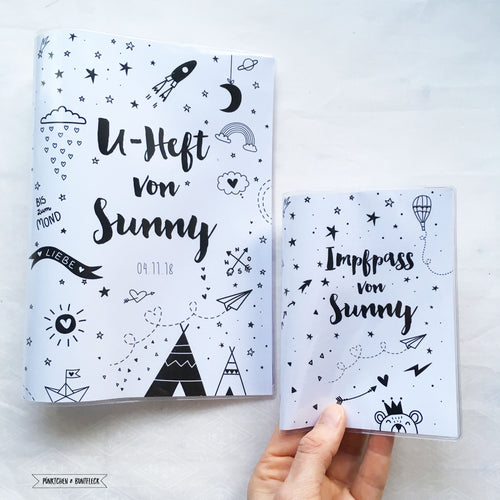 U-Heft
von
Sunny
04.11.18
BIS
zum
MOND
LIEBE
Impfpass
von
Sunny
PÜNKTCHEN & BUNTFLECK